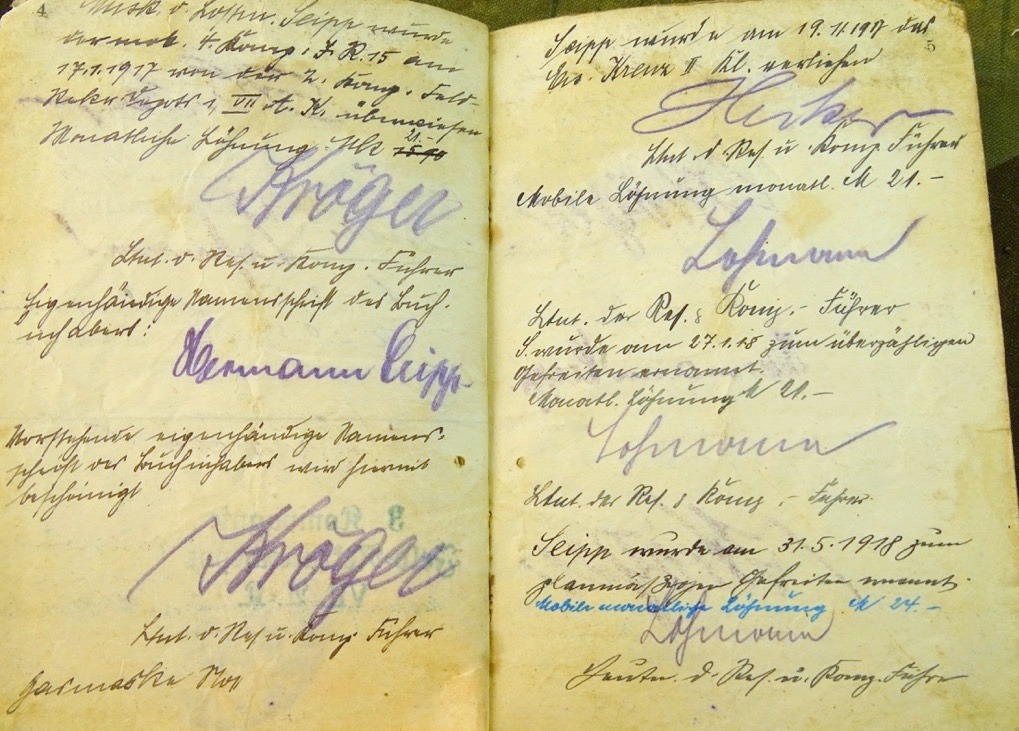 4
Musk. d. Lostn. Seipp wurde
der mob. 4. Komp. J. R. 15 am
17.1.1917 von der 2. Komp. Feld-
Rekr. Depots 1, VII A. K. überwiesen
21.-
Monatliche Löhnung Mk 15 90
Kröger
Ltnt. d. Res. u. Komp. Führer
Eigenhändige Namensschrift des Buch-
inhabers:
Hermann Seipp
Vorstehende eigenhändige Namens-
schrift des Buchinhabers wird hiermit
bescheinigt
Kröger
Ltnt. d. Res. u. Komp. Führer
Gasmaske
5
Seipp wurde am 19.11.1917 das
Eis. Kreuz II Kl. verliehen
Ltnt. d. Res. u. Komp. Führer
Mobile Löhnung monatl. M 21.-
Lohmann
Ltnt. der Res. & Komp.- Führer
S. wurde am 27.1.18 zum überzähligen
Gefreiten ernannt.
Monatl. Löhnung M 21.-
Lohmann
Ltnt. der Res. & Komp.- Führer
Seipp wurde am 31.5.1918 zum
planmäßigen Gefreiten ernannt.
Mobile monatliche Löhnung M 24.-
Lohmann
Leutn. d. Res. u. Komp. Führer